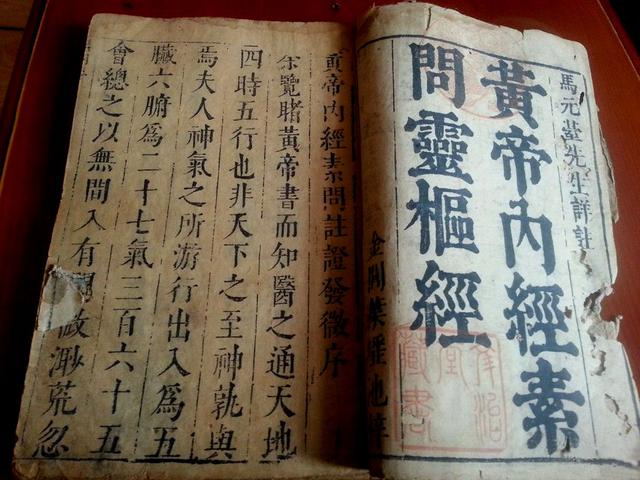 馬元臺先生詳註
黃帝內經素
問靈樞經
金閶葉
治
堂
藏書
黃帝內經素問註證發微序
余覽睹黃帝書而知醫之通天地
四時五行也非天下之至神孰與
焉夫人神氣之所游行出入爲五
臟六腑爲二十七氣三百六十五
會總之以無間入有間故渺荒忽